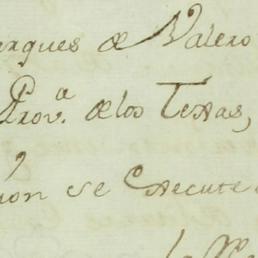 arques de Valero
Prov.ª de los Texas,
ion se execute